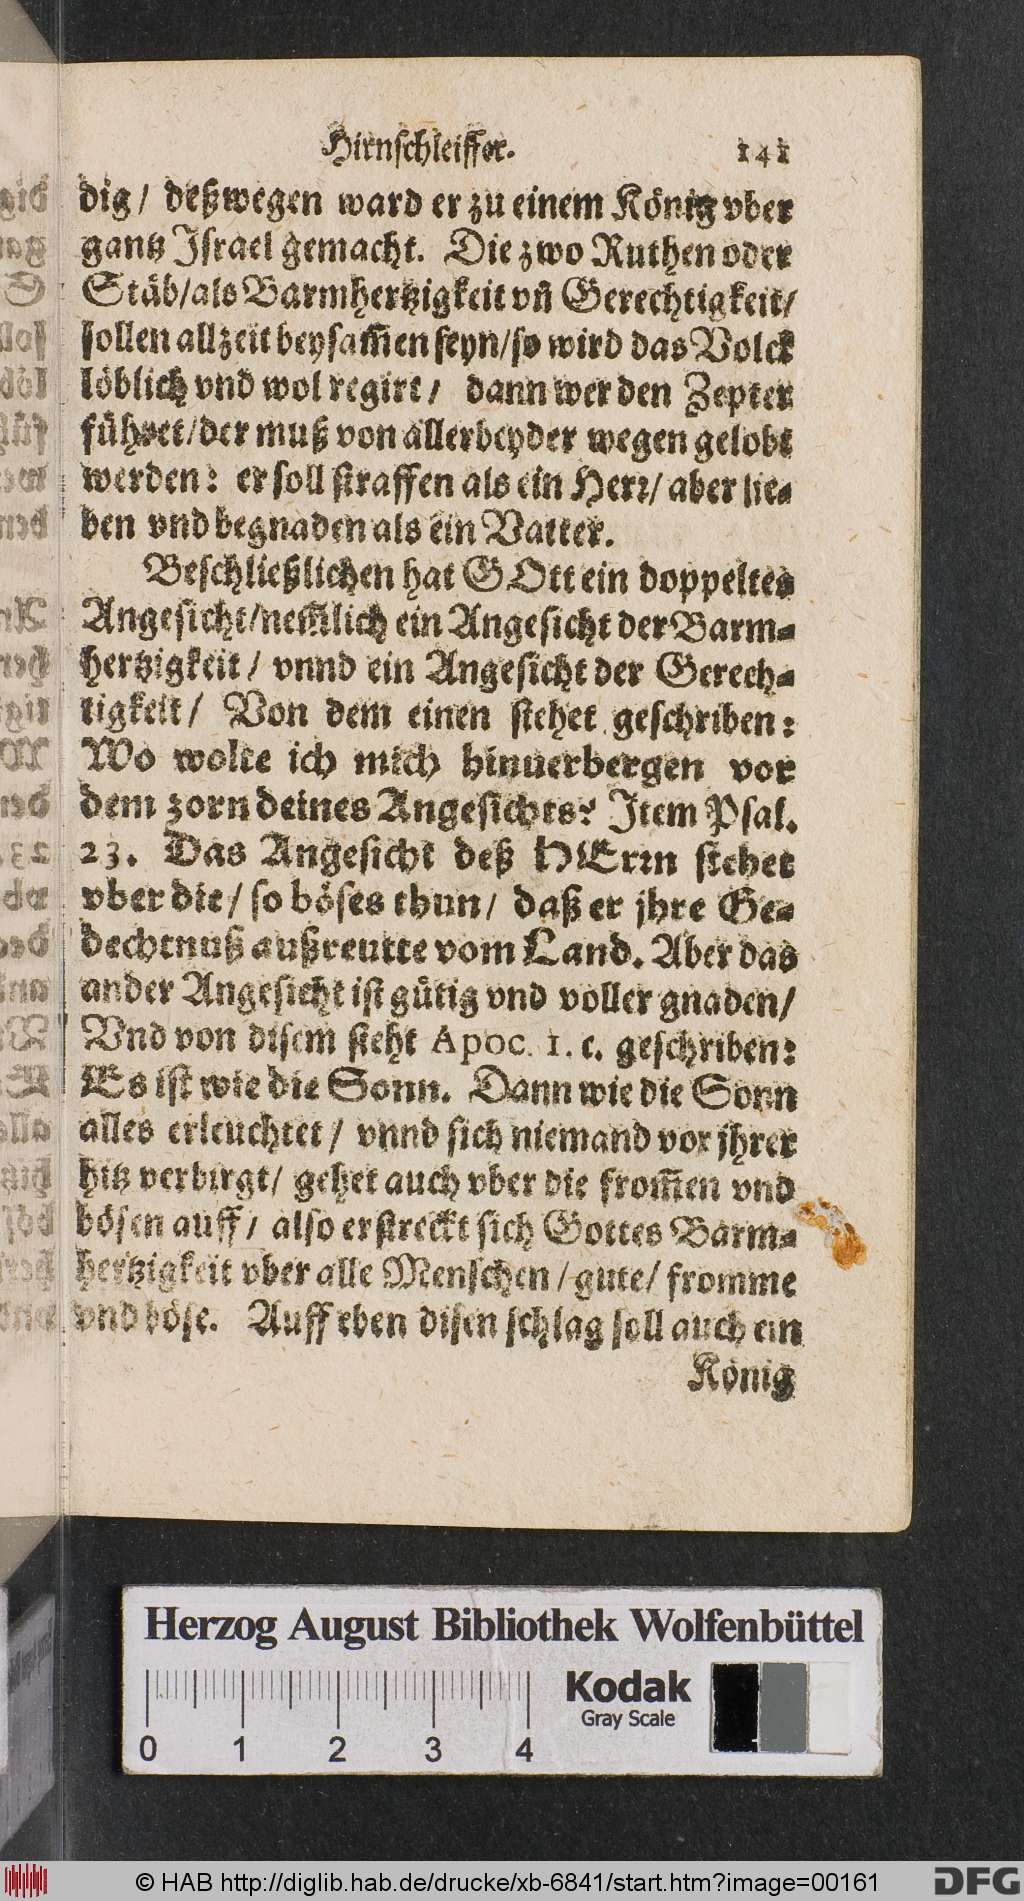 Hirnschleiffer. 141
dig/ deßwegen ward er zu einem König vber
gantz Israel gemacht. Die zwo Ruthen oder
Stäb/als Barmhertzigkeit vn̄ Gerechtigkeit/
sollen allzeit beysam̄en seyn/so wird das Volck
löblich vnd wol regirt/ dann wer den Zepter
führet/der muß von allerbeyder wegen gelobt
werden: er soll straffen als ein Herr/ aber lie-
ben vnd begnaden als ein Vatter.
Beschließlichen hat GOtt ein doppeltes
Angesicht/nem̄lich ein Angesicht der Barm-
hertzigkeit/ vnnd ein Angesicht der Gerech-
tigkeit/ Von dem einen stehet geschriben:
Wo wolte ich mich hinuerbergen vor
dem zorn deines Angesichts? Item Psal.
23. Das Angesicht deß HErrn stehet
vber die/ so böses thun/ daß er jhre Ge-
dechtnuß außreutte vom Land. Aber das
ander Angesicht ist gütig vnd voller gnaden/
Vnd von disem steht Apoc. 1. c. geschriben:
Es ist wie die Sonn. Dann wie die Sonn
alles erleuchtet/ vnnd sich niemand vor jhrer
hitz verbirgt/ gehet auch vber die from̄en vnd
bösen auff/ also erstreckt sich Gottes Barm-
hertzigkeit vber alle Menschen/ gute/ fromme
vnd böse. Auff eben disen schlag soll auch ein
König
Herzog August Bibliothek Wolfenbüttel
Kodak
Gray Scale
0 1 2 3 4
© HAB http://diglib.hab.de/drucke/xb-6841/start.htm?image=00161
DFG